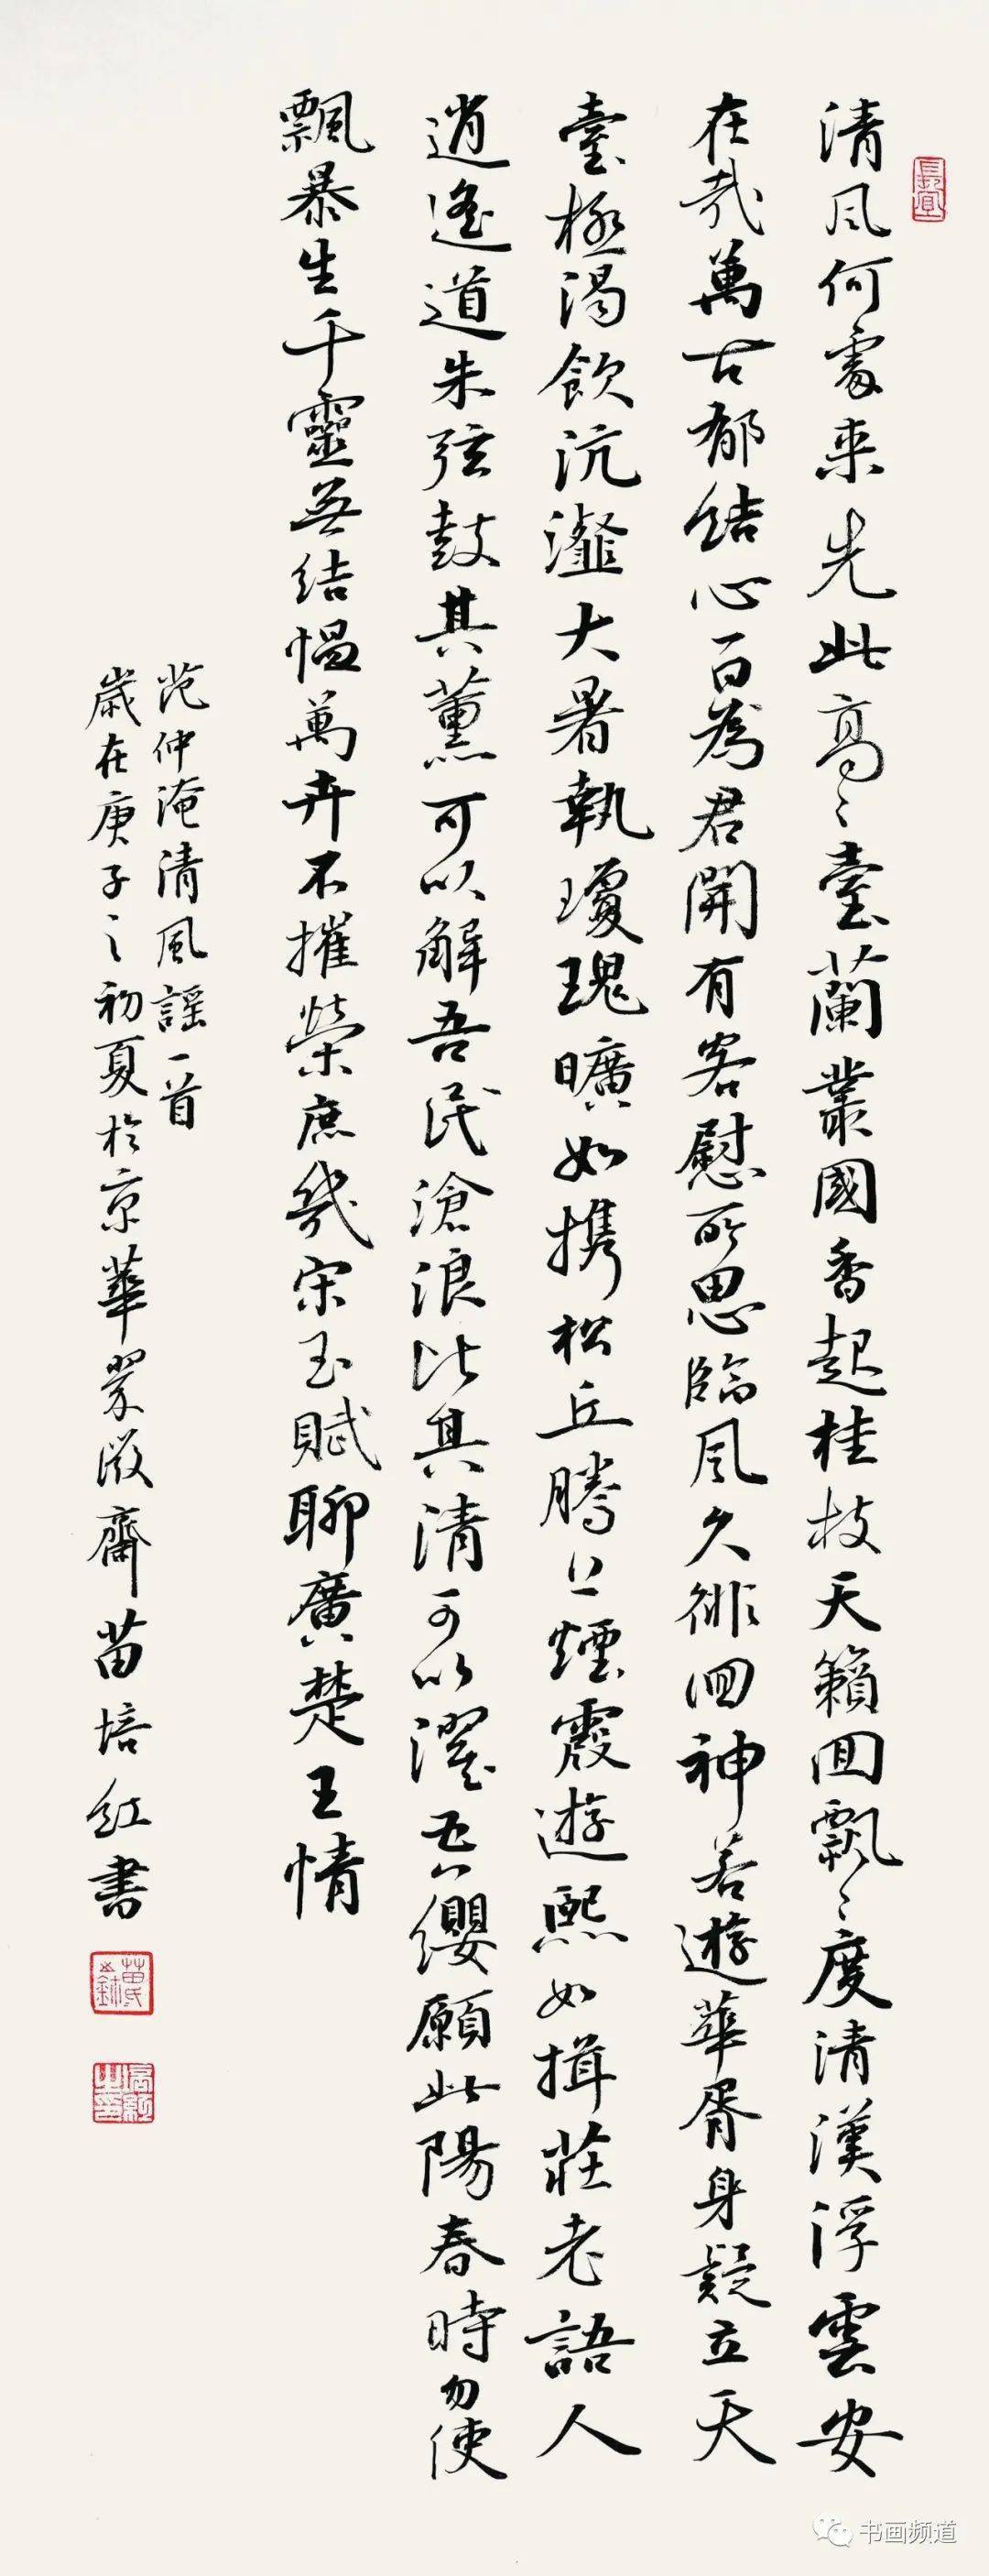 清风何處来先此高〻臺蘭叢國香起桂枝天籟囬飄〻度清漢浮雲安
在哉萬古郁結心一百為君開有客慰所思臨风久徘囬神若遊華胥身疑立天
臺極渴飲沆瀣大暑執瓊瑰曠如携松丘騰上煙霞遊熙如揖莊老語人
逍遙道朱弦鼓其薰可以解吾民滄浪比其清可以濯吾纓願此陽春時勿使
飄暴生千靈無結愠萬卉不摧榮庶幾宋玉賦聊廣楚王情
范仲淹清風謠一首
歲在庚子之初夏於京華翠微齋苗培红书
书画频道